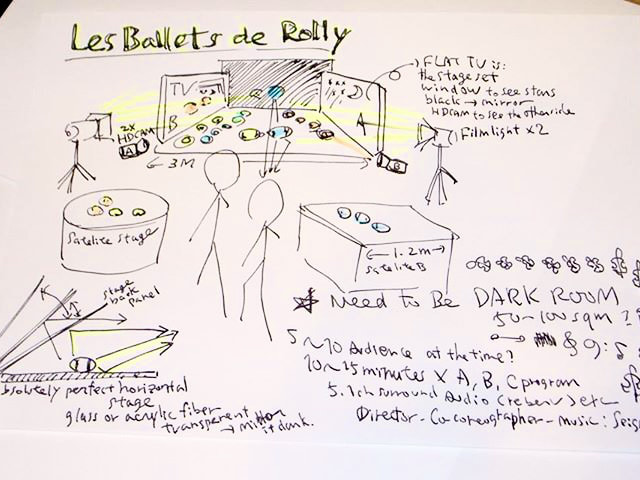 Les Ballets de Rolly
FLAT TV is:
the stage set
window to see stars
black → mirror
HDCAM to see the otherside
Filmlight x2
TV
D
B
A
2x
HDCAM
A
B
← 3M
satelite stage
← 1.2m →
satelite B
stage
back
panel
Need To Be DARK ROOM
50-100 sqm ?
5~10 Audience at the time?
10~15 minutes X A, B, C program
5.1ch surround Audio (rebenu) etc
Director - Cocoreographer - music: Seig
bsolutely perfect horizontal
stage
glass or acrylic fiber
transparent
it dark.